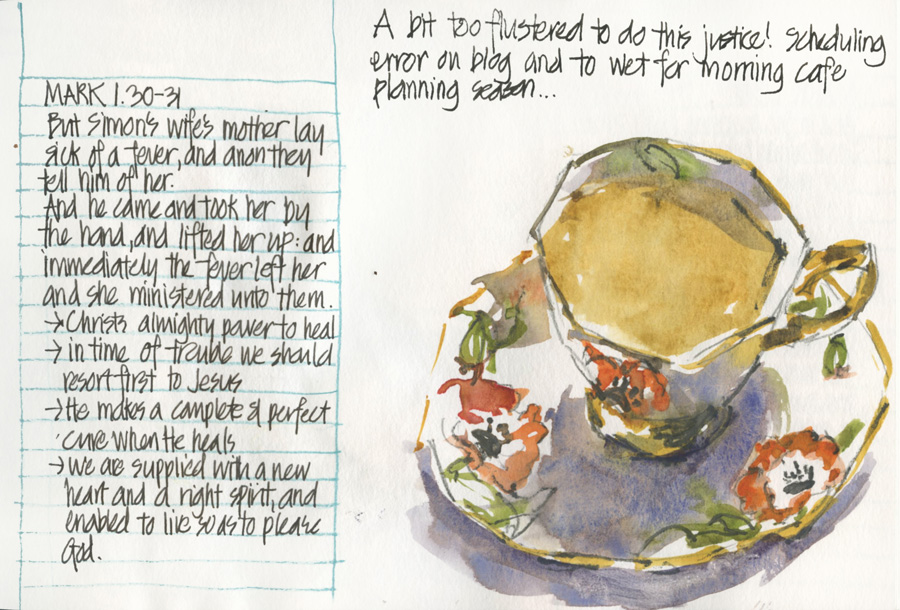 MARK 1.30-31
But Simon's wife's mother lay
sick of a fever, and anon they
tell him of her.
And he came and took her by
the hand, and lifted her up: and
immediately the fever left her
and she ministered unto them.
→ Christ's almighty power to heal
→ in time of trouble we should
resort first to Jesus
→ He makes a complete & perfect
cure when He heals
→ we are supplied with a new
heart and a right spirit, and
enabled to live so as to please
God.
A bit too flustered to do this justice! Scheduling
error on blog and to wet for morning cafe
planning season...